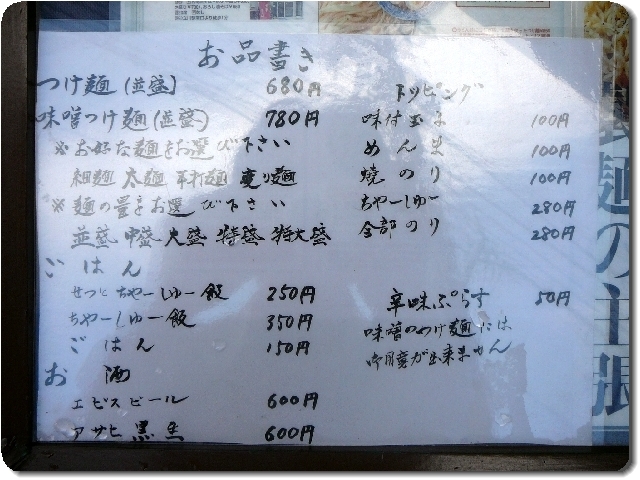 お品書き
つけ麺(並盛) 680円
味噌つけ麺(並盛) 780円
※お好な麺をお選び下さい
細麺 太麺 平打麺 変り麺
※麺の量をお選び下さい
並盛 中盛 大盛 特盛 特大盛
ごはん
せっと ちゃーしゅー飯 250円
ちゃーしゅー飯 350円
ごはん 150円
お酒
エビスビール 600円
アサヒ 黒生 600円
トッピング
味付玉子 100円
めんま 100円
焼のり 100円
ちゃーしゅー 280円
全部のり 280円
辛味ぷらす 50円
味噌のつけ麺には
御用意が出来ません
製麺の主張